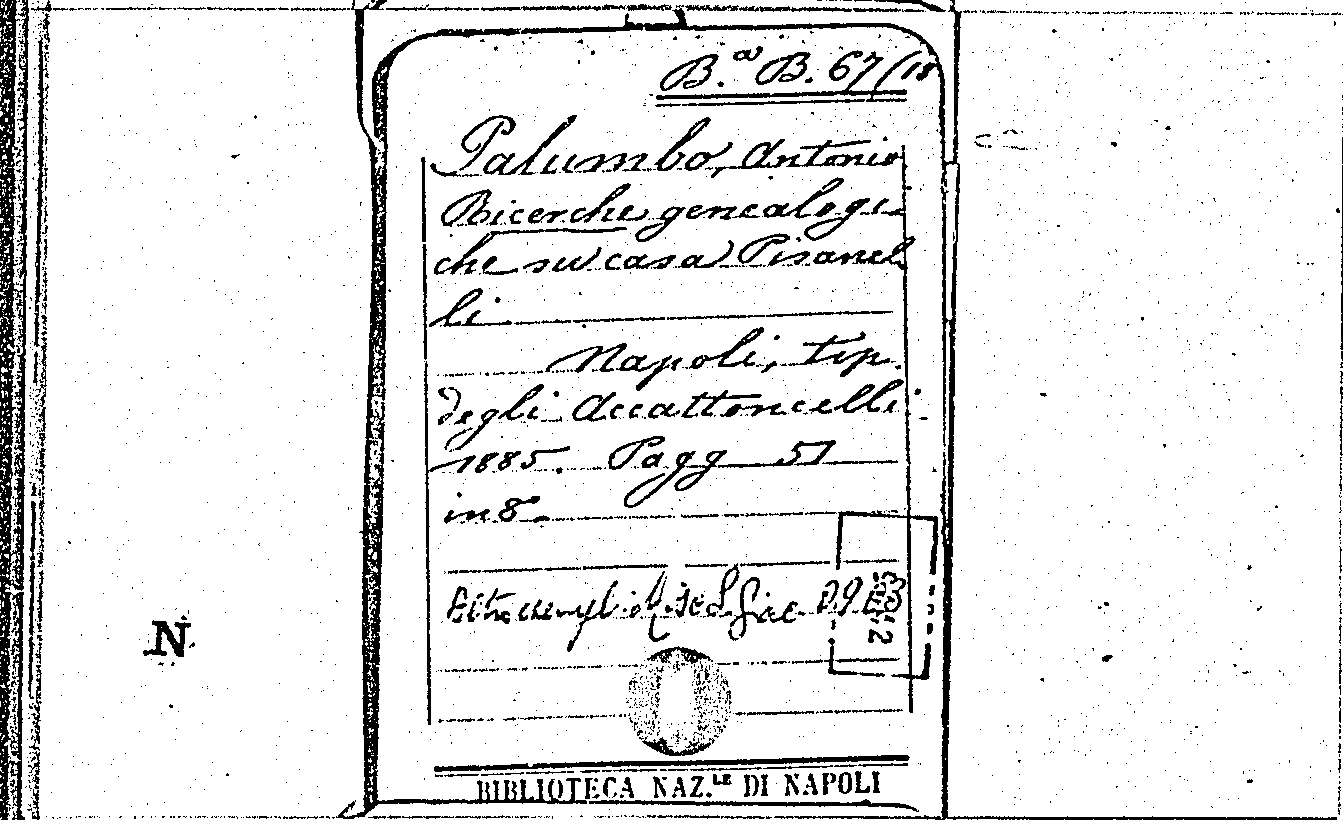 B.ª B. 67/(18
Palumbo, Antonio
Ricerche genealogi-
che su casa Pisanel
li
Napoli, tip.
degli Accattoncelli
1885. Pagg 51
in 8°
N
BIBLIOTECA NAZ.LE DI NAPOLI